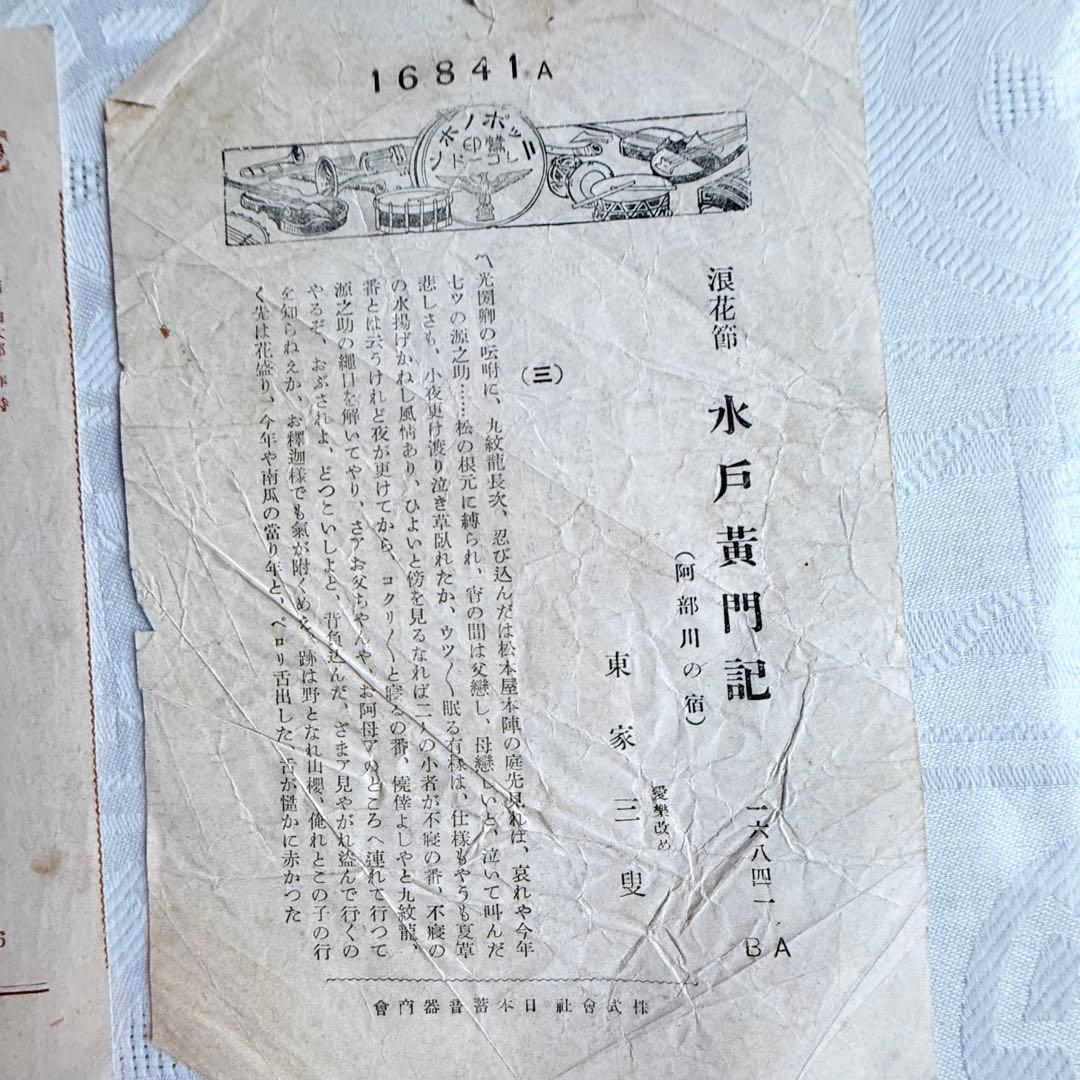 16841 A
ニッポノホン
鷲印
レコード
浪花節 水戸黄門記
(阿部川の宿)
一六八四一 A B
愛樂改め
東家三叟
(三)
〽光圀卿の吩咐に、九紋龍長次、忍び込んだは松本屋本陣の庭先見れば、哀れや今年
七ッの源之助……松の根元に縛られ、宵の間は父戀し、母戀しいと、泣いて叫んだ
悲しさも、小夜更け渡り泣き草臥れたか、ウツ〱眠る有様は、仕様もやうも夏草
の水揚げかねし風情あり、ひよいと傍を見るなれば二人の小者が不寝の番、不寝の
番とは云うけれど夜が更けてから、コクリ〱と寝るの番、僥倖よしやと九紋龍、
源之助の繩目を解いてやり、さアお父ちやんや、お阿母アのところへ連れて行つて
やるぞ、おぶされよ、どつこいしよと、背負込んだ、さまア見やがれ盗んで行くの
を知らねえか、お釋迦様でも氣が附くめえ、跡は野となれ山櫻、俺れとこの子の行
く先は花盛り、今年や南瓜の當り年と、ペロリ舌出した、舌が馗かに赤かつた
株式會社日本蓄音器商會